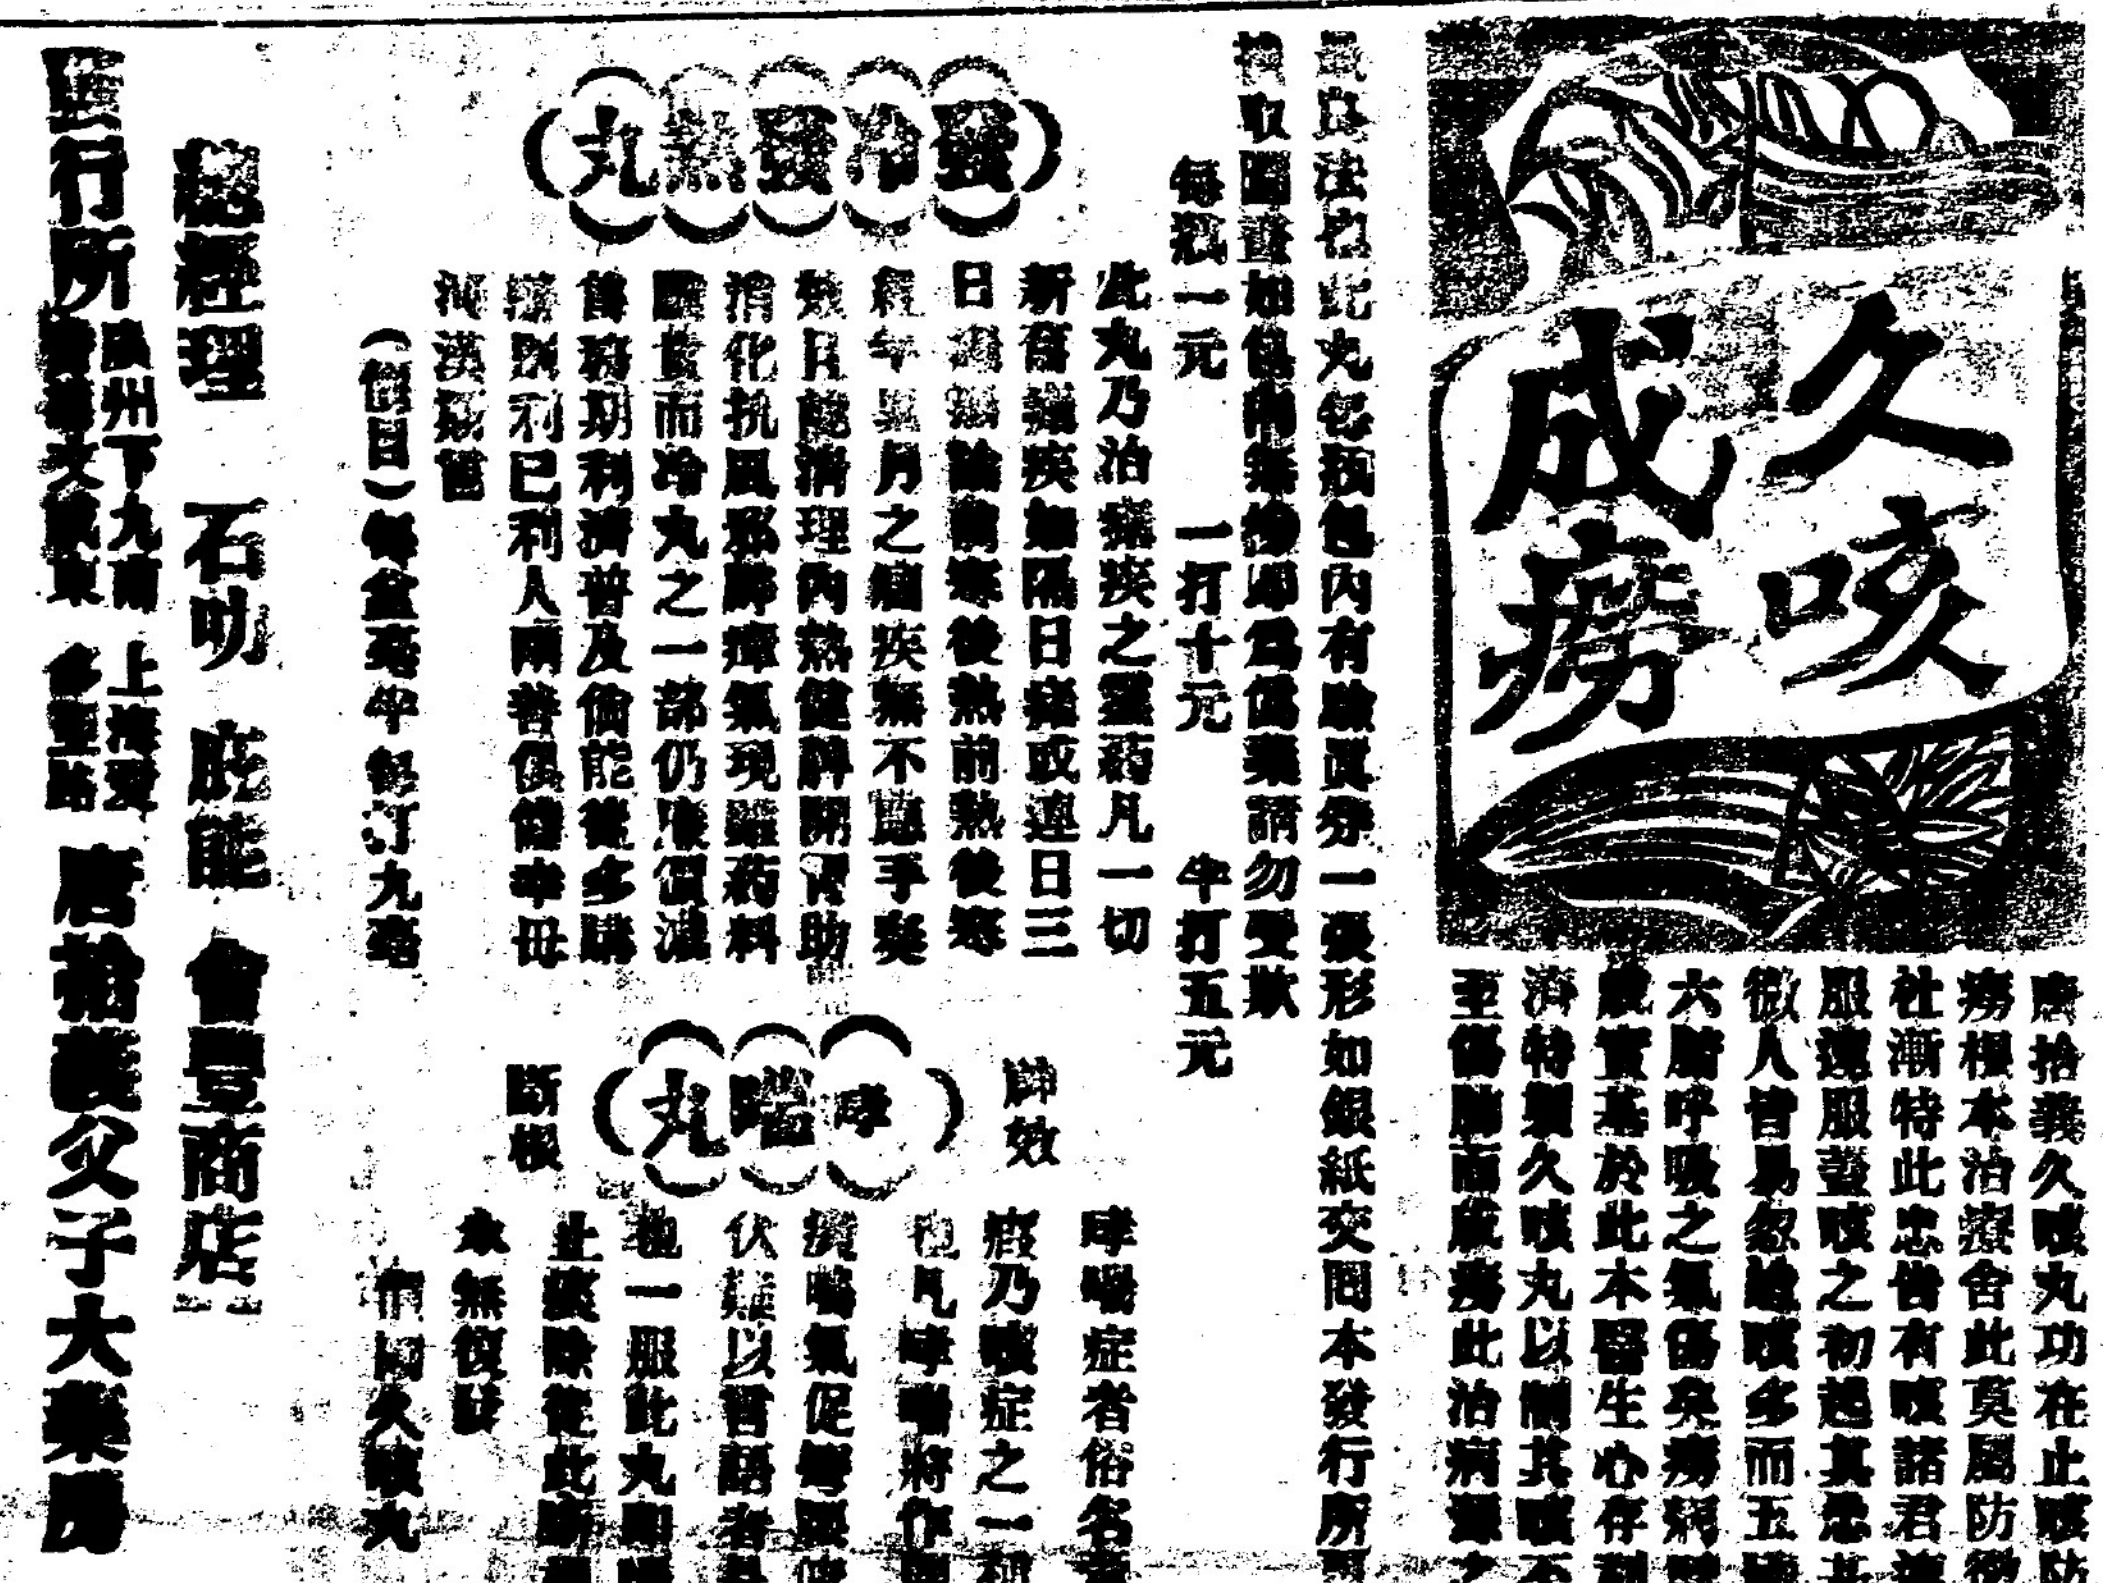 久咳
成癆
唐拾義久咳丸功在止咳防
癆根本治療舍此莫屬防微
杜漸特此忠告有咳諸君速
服速服蓋咳之初起其患甚
微人皆易忽越咳多而五臟
六腑呼吸之氣傷矣癆病
實基於此本醫生心存利
濟特製久咳丸以制其咳不
至傷肺而成癆此治病源之
良法也此丸每瓶包內有驗眞券一張形如銀紙交回本發行所
換取圖畫如包內無券卽爲僞藥請勿受欺
每瓶一元 一打十元 半打五元
發冷發熱丸
此丸乃治瘧疾之靈藥凡一切
新舊瘧疾如隔日瘧或連日三
日瘧無論前寒後熱前熱後寒
經年累月之瘧疾無不應手奏
效且能清理內熱健脾開胃助
消化抗風邪辟瘴氣現雖藥料
騰貴而冷丸之一部仍廉價濃
售務期利濟普及倘能從多購
辦則利己利人兩善俱備幸毋
河漢斯言
(價目)每盒毫半 每打九毫
神效
哮喘丸
斷根
哮喘症者俗名
瘕乃咳症之一種
也凡哮喘將作
痰喘氣促
伏難以言語者
也一服此丸卽
止藥除從此斷
永無復發
價同久咳丸
總經理 石叻 庇能 會豐商店
發行所 廣州下九甫 上海愛
文 東 多亞路
唐拾義父子大藥房